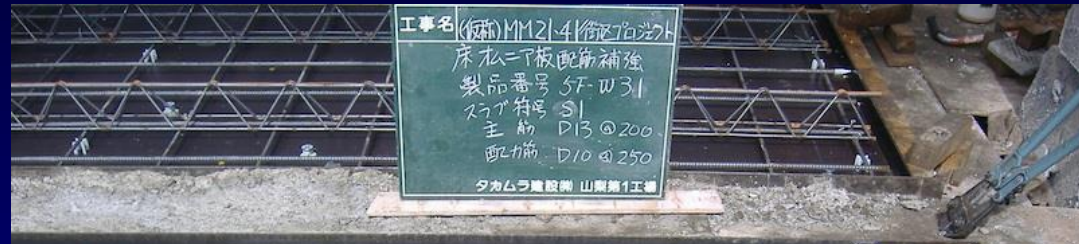 工事名 (仮称)MM21-41街区プロジェクト
床オムニア板配筋補強
製品番号 5F-W31
スラブ符号 S1
主筋 D13@200
配力筋 D10@250
タカムラ建設㈱ 山梨第1工場